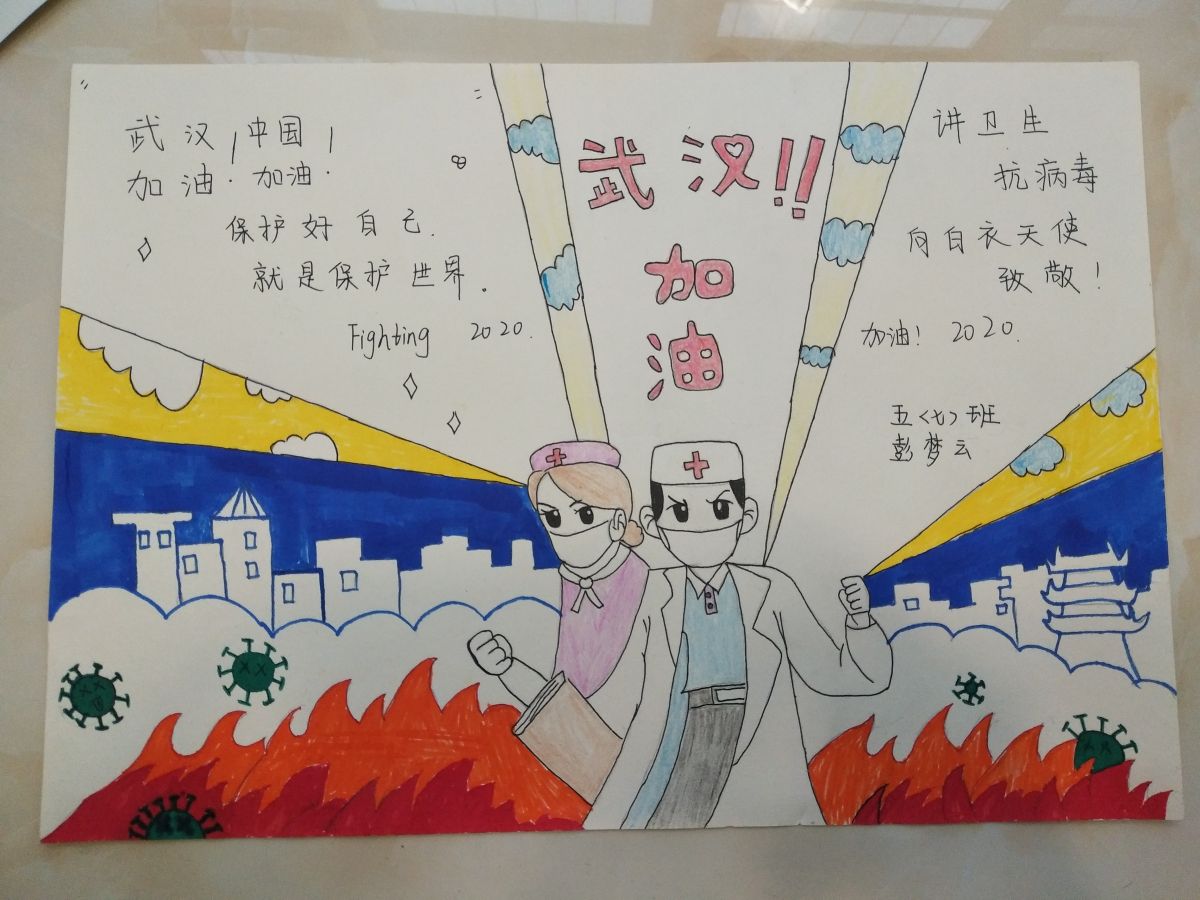 武汉！中国！
加油.加油.
保护好自己.
就是保护世界.
Fighting 2020.
武汉!!
加
油
讲卫生
抗病毒
向白衣天使
致敬！
加油！2020.
五<七>班
彭梦云